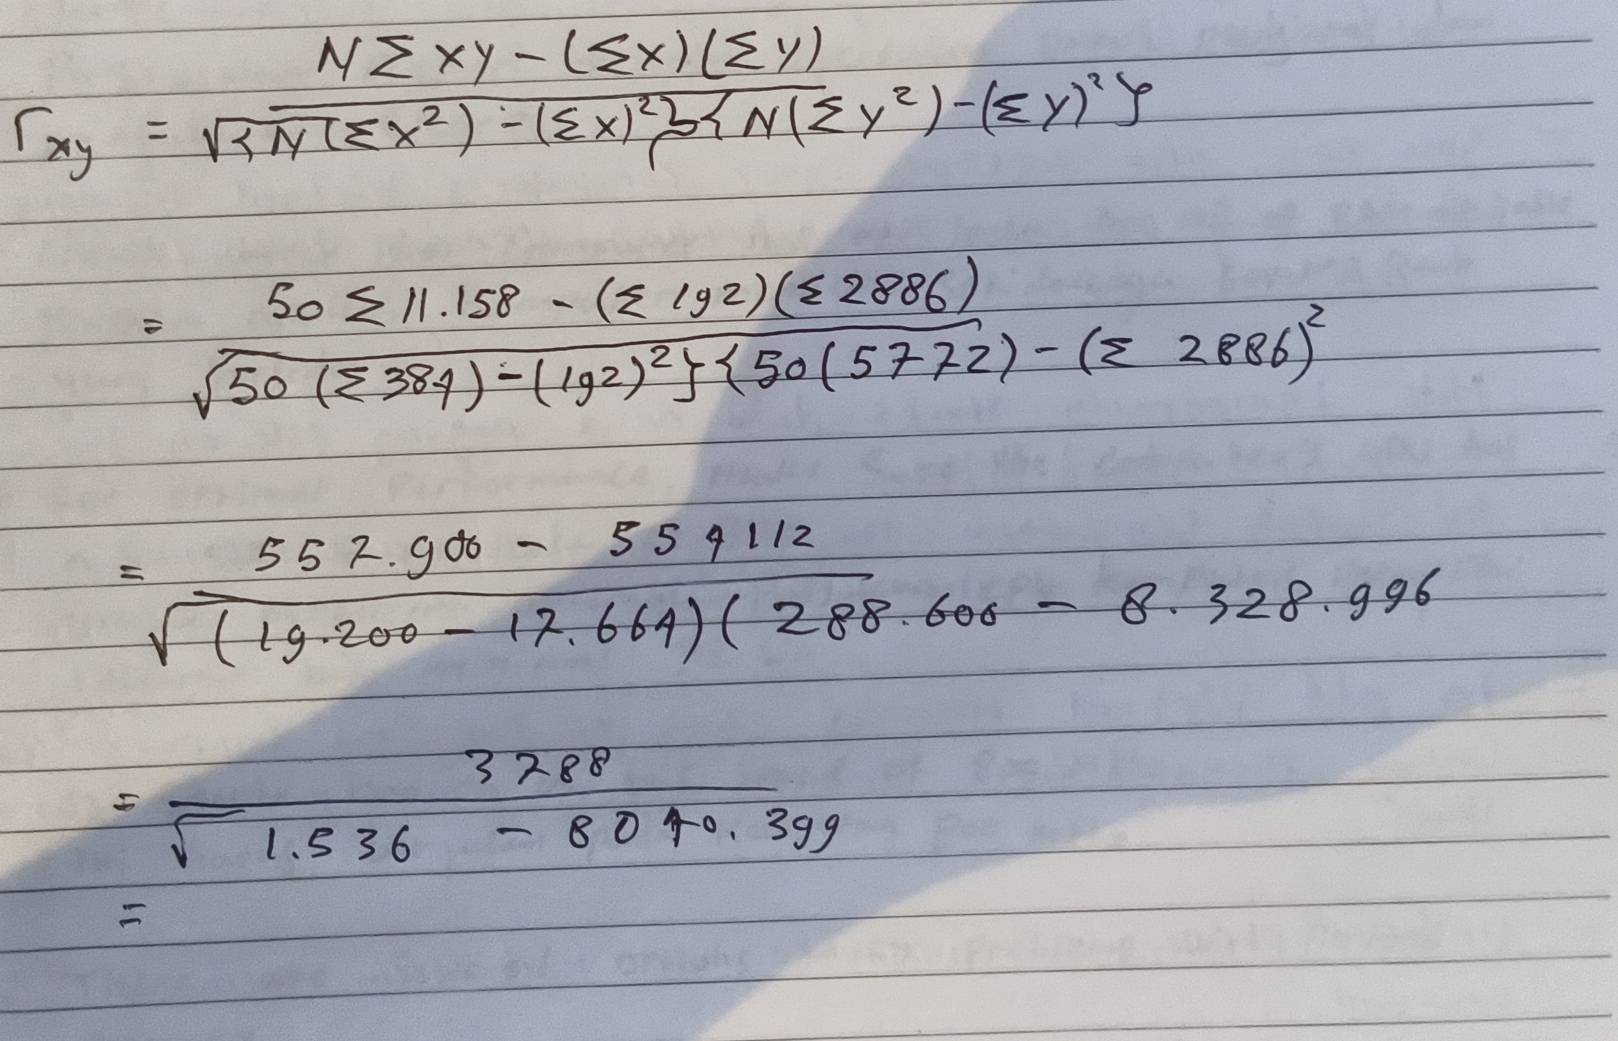 N Σ xy - (Σx) (Σy)
r xy = √{N (Σx²) - (Σx)²}{N(Σy²) - (Σy)²}
= 50 Σ 11.158 - (Σ 192) (Σ 2886)
√50 (Σ 384) - (192)²} {50 (5772) - (Σ 2886)²
= 557.900 - 554112
√(19.200 - 17.664) ( 288.600 - 8.328.996
= 3788
√ 1.536 - 8040.399
=